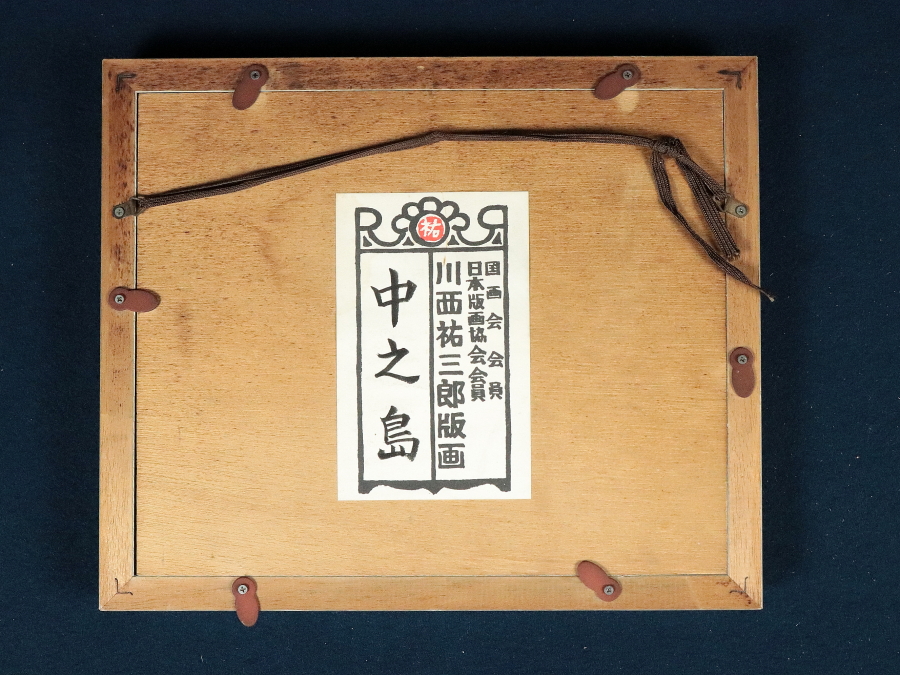 祐
国画会会員
日本版画協会会員
川西祐三郎版画
中之島